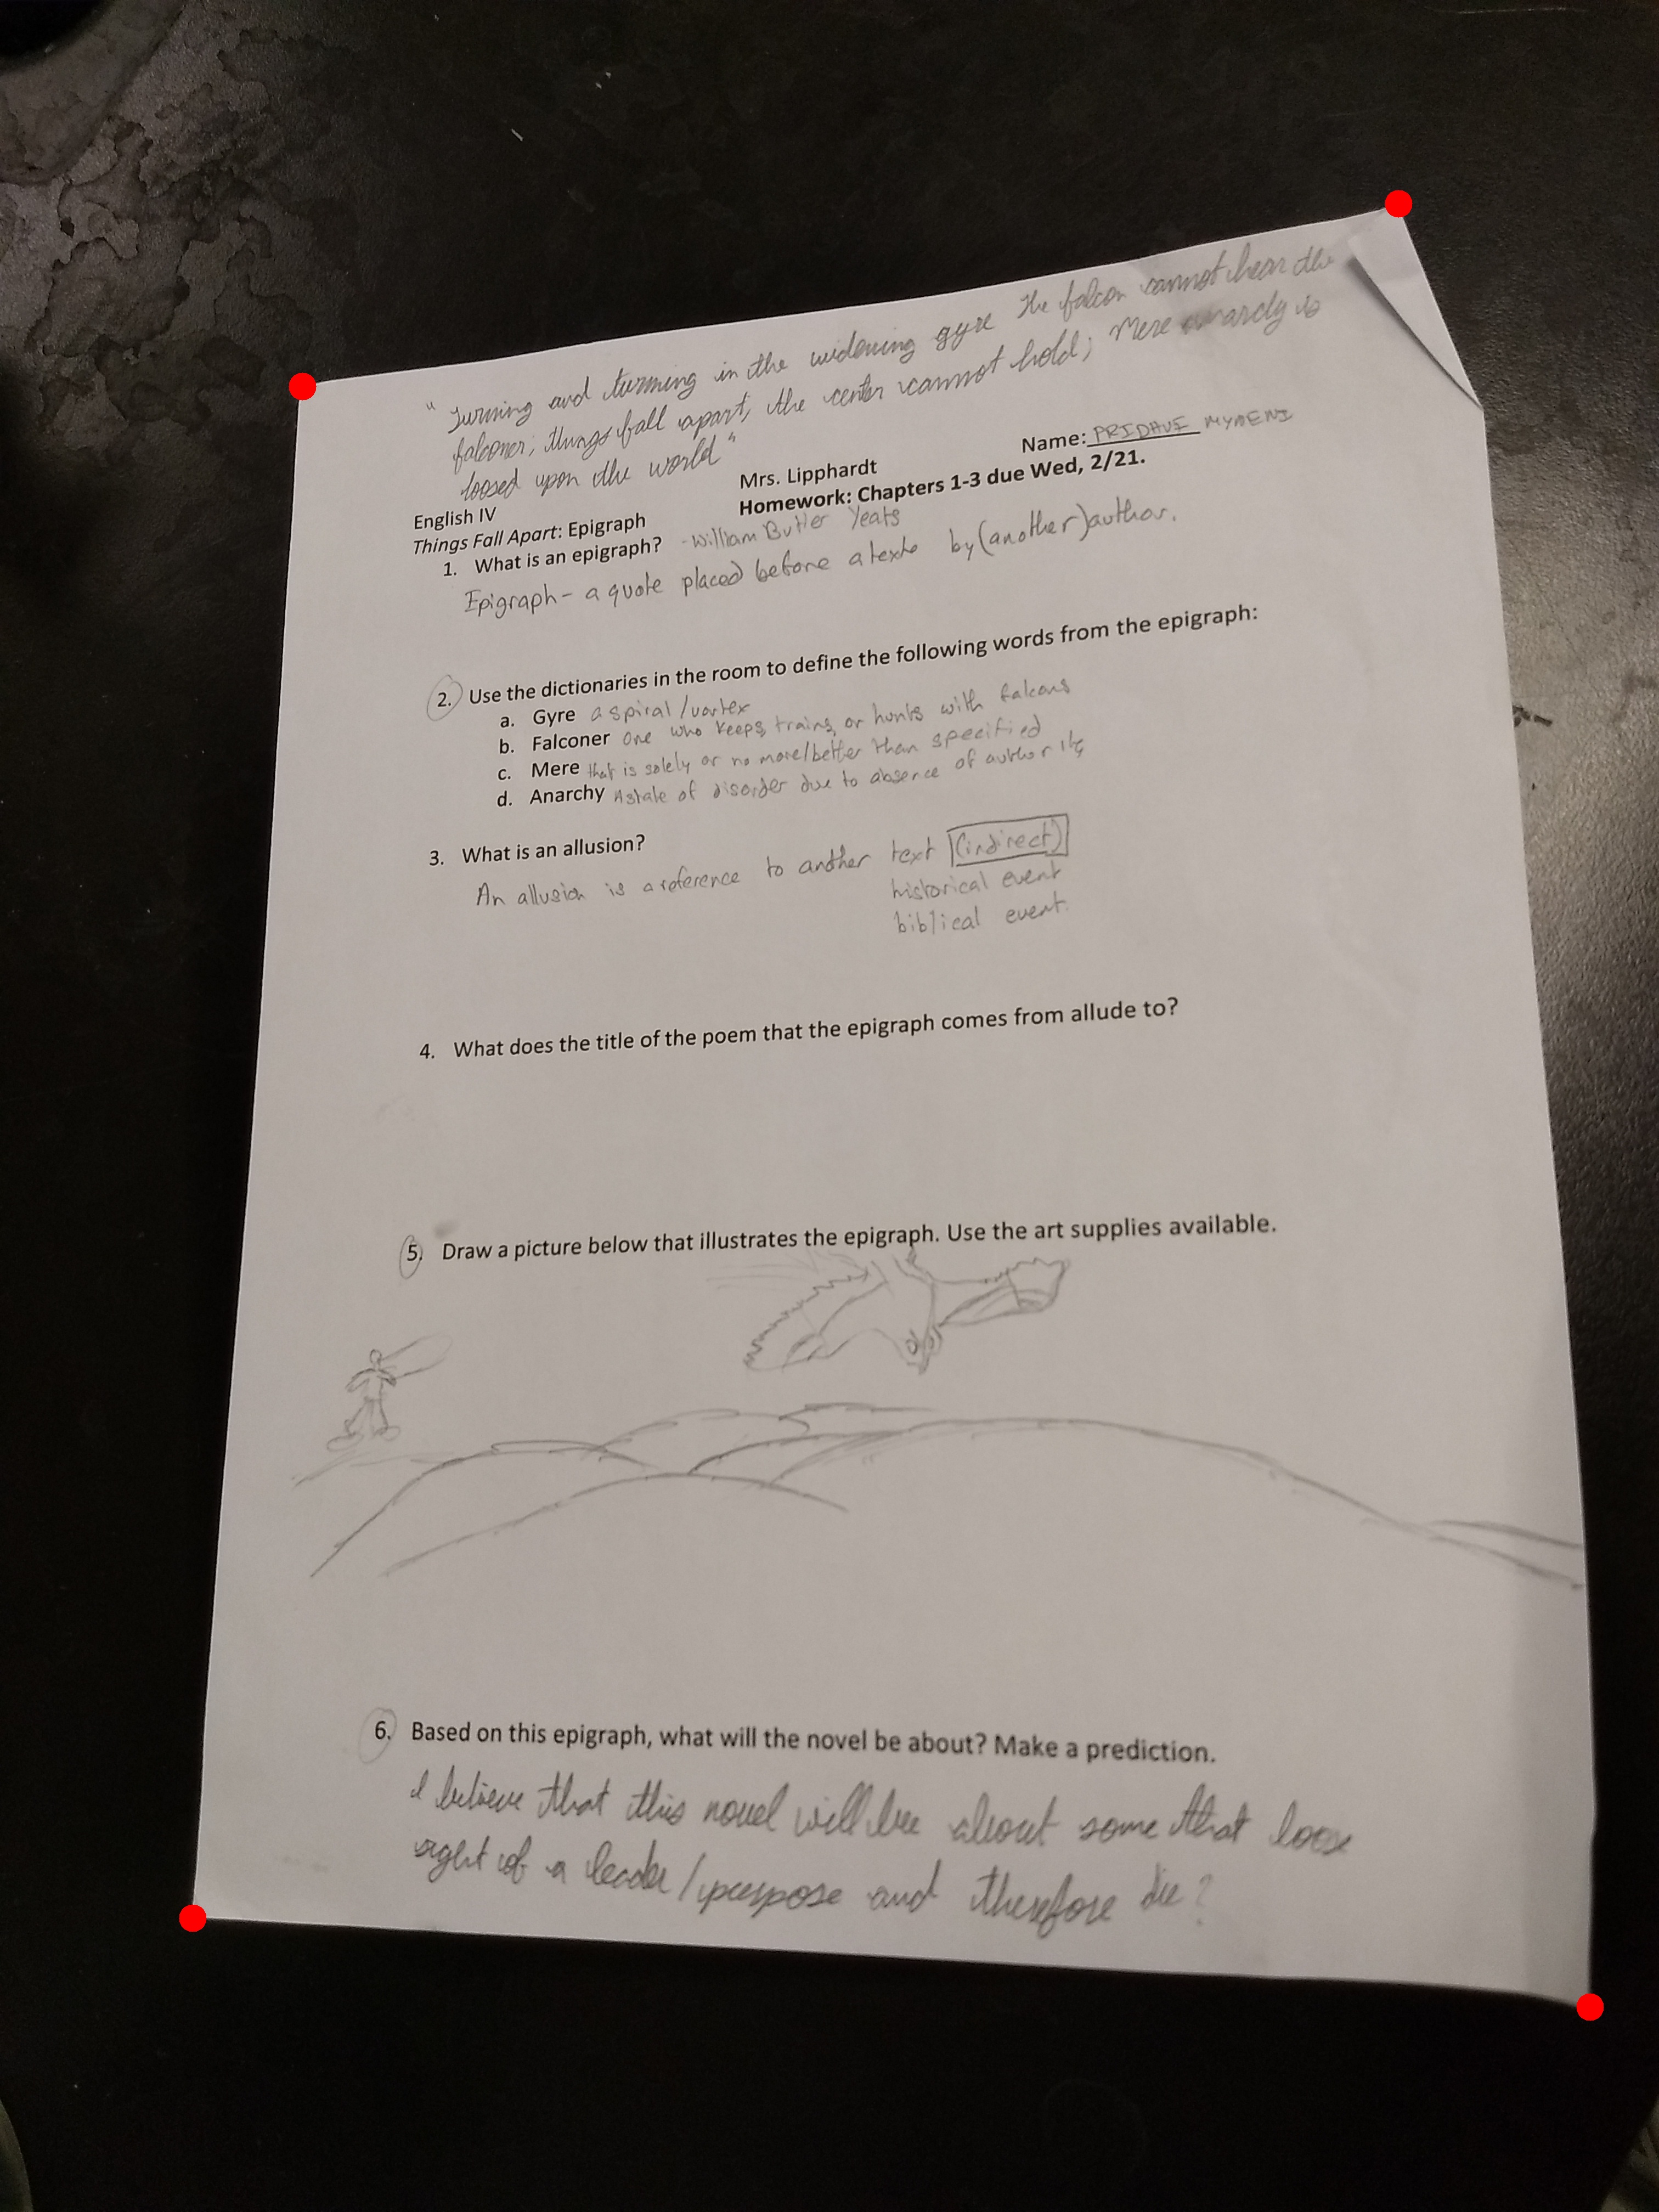 " Turning and turning in the widening gyre The falcon cannot hear the
falconer; things fall apart, the center cannot hold; Mere anarcly is
loosed upon the world"
Name: PRIDHVI MYNENI
English IV
Mrs. Lipphardt
Things Fall Apart: Epigraph
Homework: Chapters 1-3 due Wed, 2/21.
1. What is an epigraph? -William Butler Yeats
Epigraph - a quote placed before a text by (another) author.
2. Use the dictionaries in the room to define the following words from the epigraph:
a. Gyre a spiral / vortex
b. Falconer One who keeps, trains, or hunts with falcons
c. Mere that is solely or no more/better than specified
d. Anarchy A state of disorder due to absence of authority
3. What is an allusion?
An allusion is a reference to another text (indirect)
historical event
biblical event.
4. What does the title of the poem that the epigraph comes from allude to?
5. Draw a picture below that illustrates the epigraph. Use the art supplies available.
6. Based on this epigraph, what will the novel be about? Make a prediction.
I believe that this novel will be about some that loose
sight of a leader / purpose and therefore die?